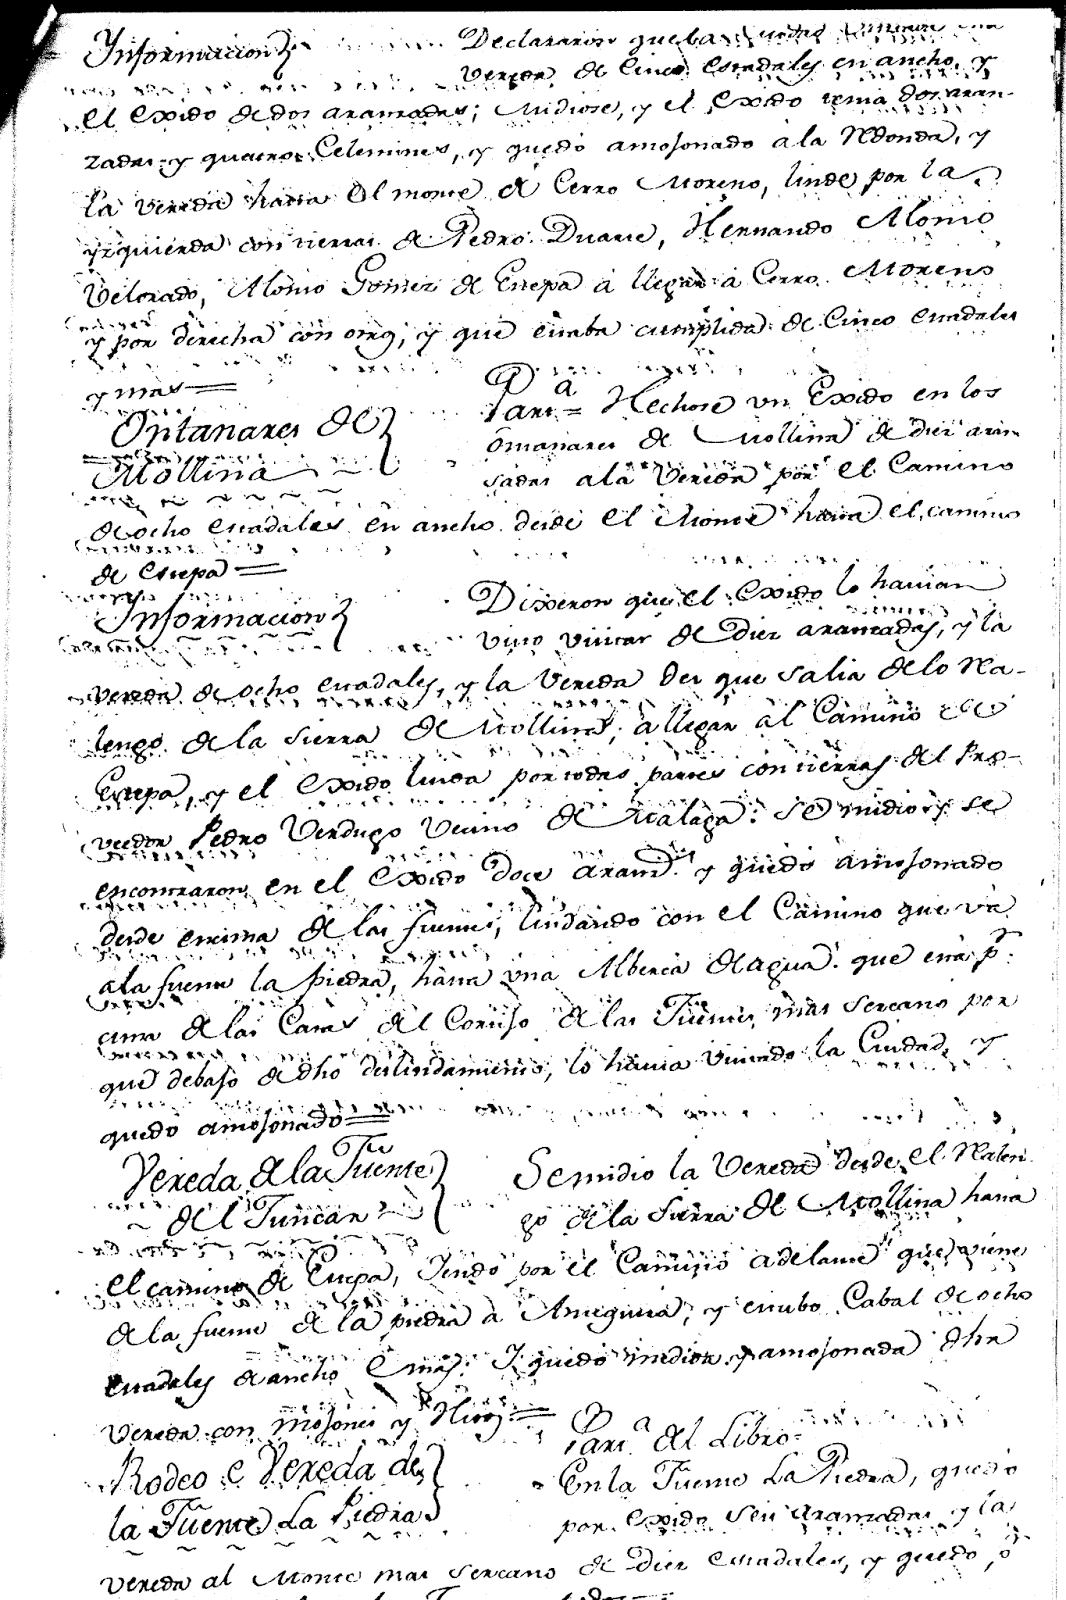 Informacion Declararon que la
Vereda de Cinco estadales en ancho, y
el exido de dos aranzadas; Midiose, y el exido tenia dos aran-
zadas y quatro Celemines, y quedó amojonado à la Redonda, y
la Vereda hasta el monte de Cerro Moreno, linde por la
yzquierda con tierras de Pedro Duarte, Hernando Alonso
Velorado, Alonso Gomez de Estepa à llegar à Cerro Moreno
y por derecha con otros, y que estaba cumplida de Cinco estadales
y mas =
Ontanares de Part.ª = Hechose un Exido en los
Mollina ontanares de Mollina de diez aran
sadas a la Vereda por el Camino
de ocho estadales en ancho desde el Monte hasta el camino
de Estepa =
Informacion Dixeron que el Exido lo havian
visto visitar de Diez aranzadas, y la
vereda de ocho estadales, y la Vereda des que salia de lo Rea-
lengo de la Sierra de Mollina, à llegar al Camino de
Estepa, y el Exido linda por todas partes con tierras del Pro-
veedor Pedro Verdugo Vecino de Malaga: se midio y se
encontraron en el Exido Doce aranz.s y quedó amojonado
desde encima de las fuentes, lindando con el Camino que và
a la fuente la piedra, hasta una Alberca de agua que està p.r
cima de las Casas del Cortijo de las Fuentes mas sercano por
que debajo de dho deslindamiento, lo havia visitado la Ciudad, y
quedo amojonado =
Vereda de la Fuente Se midio la Vereda desde el Realen
del Tuncar go de la Sierra de Mollina hasta
el camino de Estepa, Yendo por el Camino adelante que viene
de la fuente de la piedra à Antequera, y estubo Cabal de ocho
estadales de ancho e mas: Y quedó medida y amojonada dha
Vereda con mojones y Hitos =
Rodeo e Vereda de Part.ª del Libro =
la Fuente La Piedra En la Fuente La Piedra, quedó
por exido seis aranzadas y la
vereda al Monte mas sercano de Diez estadales, y quedó